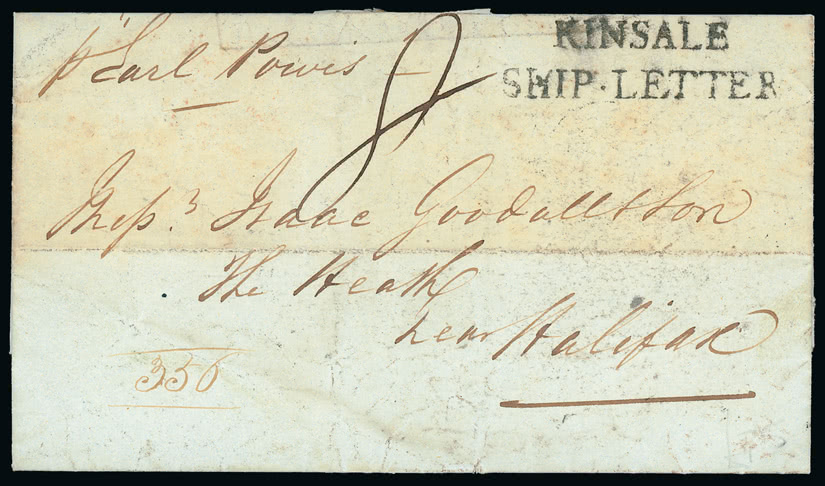 KINSALE
SHIP·LETTER
pr Earl Powis
8
Messrs Isaac Goodall & Son
The Heath
near Halifax
336